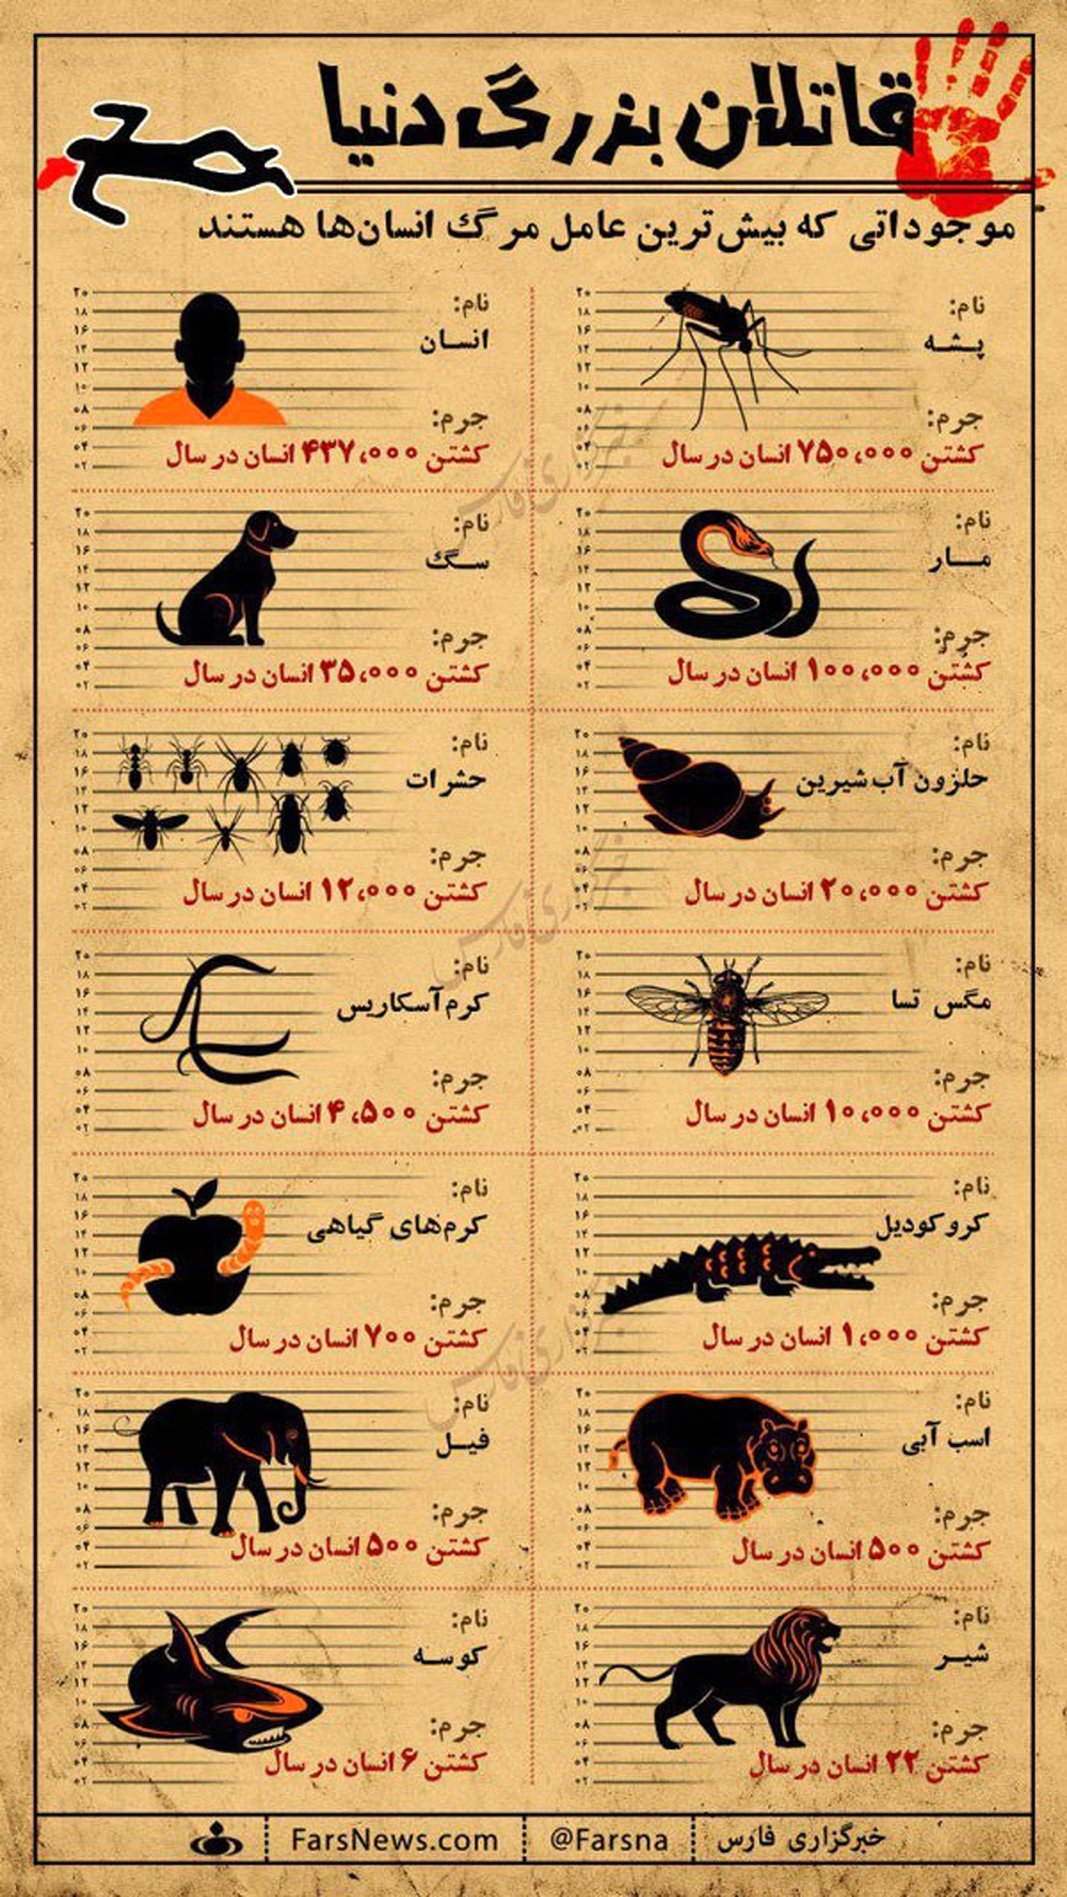 قاتلان بزرگ دنیا
موجوداتی که بیش‌ترین عامل مرگ انسان‌ها هستند
نام:
پشه
جرم:
کشتن ۷۵۰،۰۰۰ انسان در سال
نام:
انسان
جرم:
کشتن ۴۳۷،۰۰۰ انسان در سال
نام:
مار
جرم:
کشتن ۱۰۰،۰۰۰ انسان در سال
نام:
سگ
جرم:
کشتن ۳۵،۰۰۰ انسان در سال
نام:
حلزون آب شیرین
جرم:
کشتن ۲۰،۰۰۰ انسان در سال
نام:
حشرات
جرم:
کشتن ۱۲،۰۰۰ انسان در سال
نام:
مگس تسا
جرم:
کشتن ۱۰،۰۰۰ انسان در سال
نام:
کرم آسکاریس
جرم:
کشتن ۴،۵۰۰ انسان در سال
نام:
کروکودیل
جرم:
کشتن ۱،۰۰۰ انسان در سال
نام:
کرم‌های گیاهی
جرم:
کشتن ۷۰۰ انسان در سال
نام:
اسب آبی
جرم:
کشتن ۵۰۰ انسان در سال
نام:
فیل
جرم:
کشتن ۵۰۰ انسان در سال
نام:
شیر
جرم:
کشتن ۲۲ انسان در سال
نام:
کوسه
جرم:
کشتن ۶ انسان در سال
خبرگزاری فارس
@Farsna
FarsNews.com